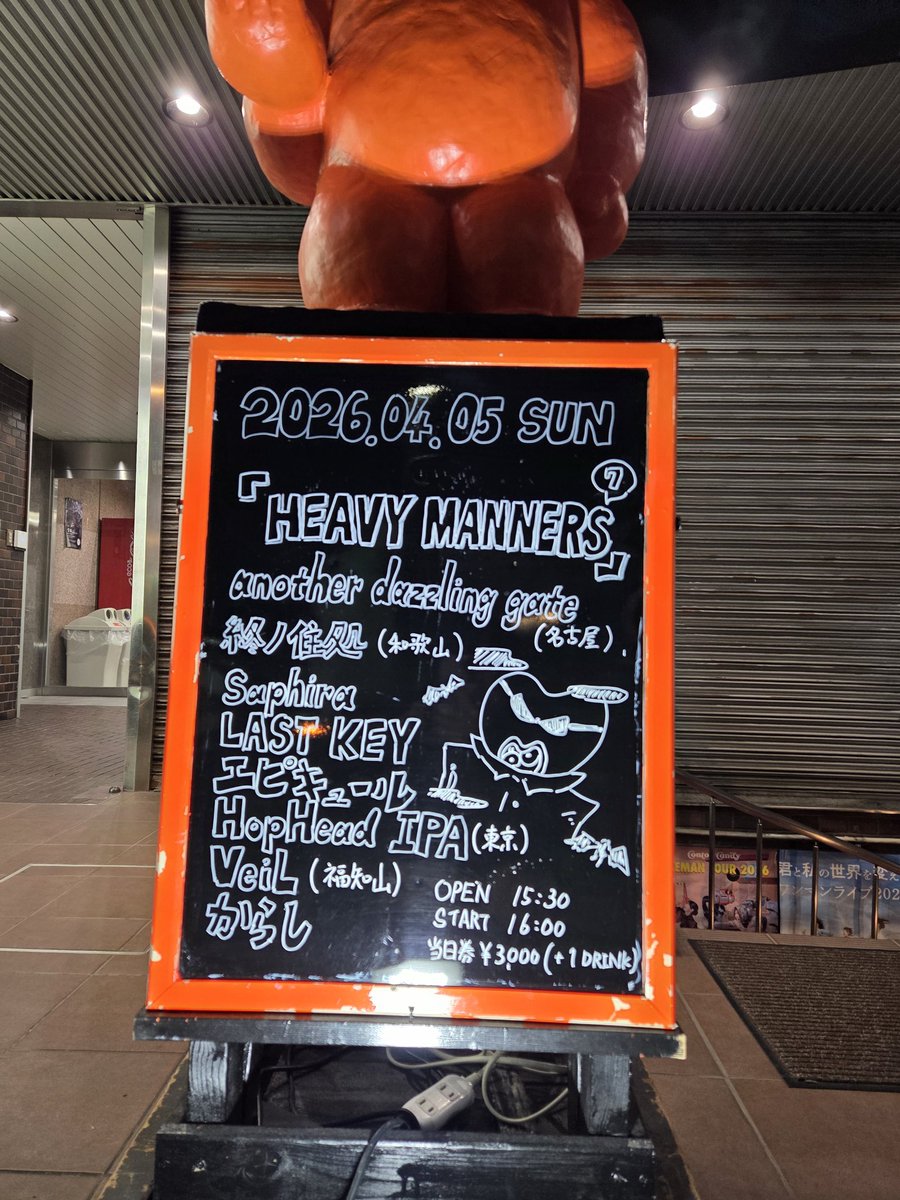 2026.04.05 SUN
『HEAVY MANNERS 7』
another dazzling gate
(名古屋)
終ノ住処(和歌山)
Saphira
LAST KEY
エピキュール
HopHead IPA(東京)
VeiL(福知山)
からし
OPEN 15:30
START 16:00
当日券¥3000(+1DRINK)
EMAN TOUR 2026
君と私の世界を変え
ワンマンライブ202